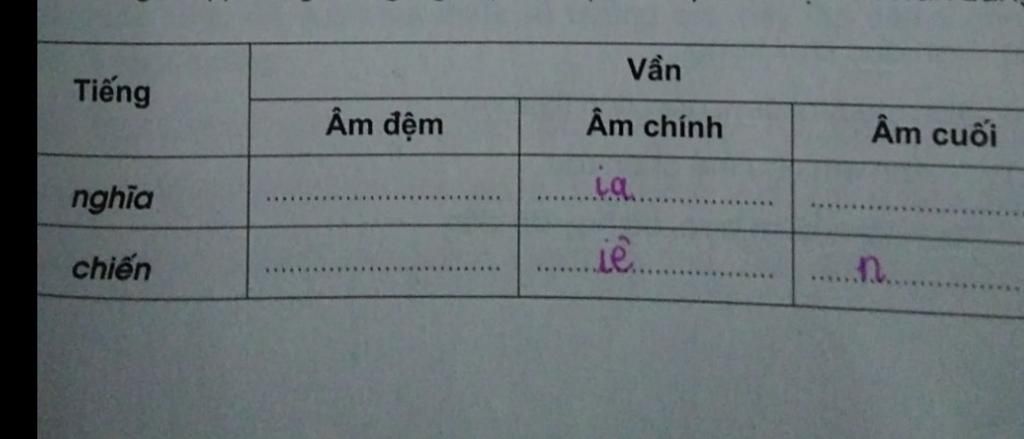 Tiếng Vần
Âm đệm Âm chính Âm cuối
nghĩa .......... ia .......... ..........
chiến .......... iê .......... n ..........